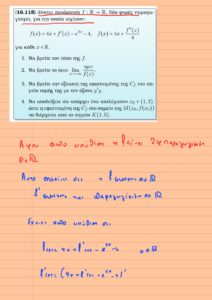 (16.115) Δίνεται συνάρτηση f : ℝ → ℝ, δύο φορές παραγωγίσιμη, για την οποία ισχύουν:
f(x) = 4x + f'(x) − e²ˣ − 4, f(x) = 4x +
για κάθε x ∈ ℝ.
1. Να βρείτε τον τύπο της f.
2. Να βρείτε το όριο
3. Να βρείτε την εξίσωση της εφαπτομένης της C_f στο σημείο τομής της με τον άξονα y'y.
4. Να αποδείξετε ότι υπάρχει ένα τουλάχιστον x₀ ∈ (1, 2), ώστε η εφαπτομένη της C_f στο σημείο της M(x₀, f(x₀)) να διέρχεται από το σημείο
Αφού από υπόθεση η f είναι 2 παραγωγίσιμη
στο ℝ
Αυτό σημαίνει ότι η f συνεχής στο ℝ
f' συνεχής και παραγωγίσιμη στο ℝ
Έχουμε από υπόθεση ότι
f(x) = 4x + f'(x) − e²ˣ − 4 x ∈ ℝ
f'(x) = (4x + f'(x) − e²ˣ − 4)'